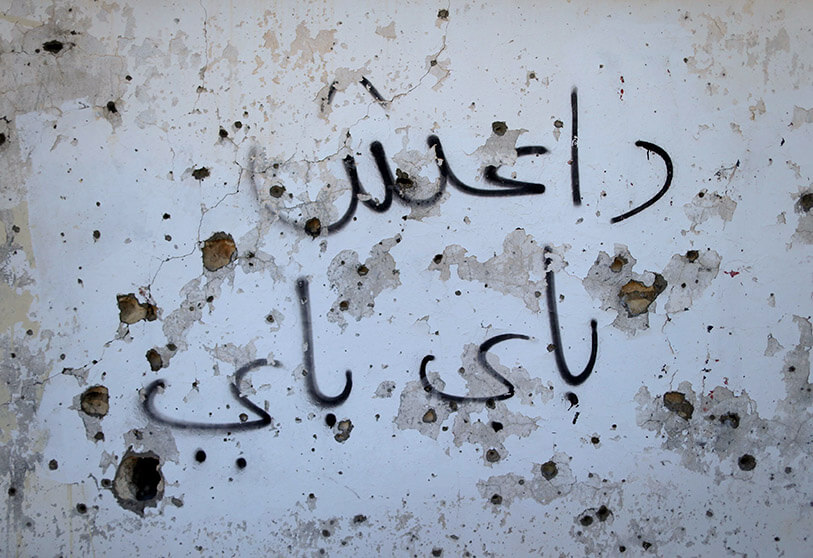 داعش
باي باي